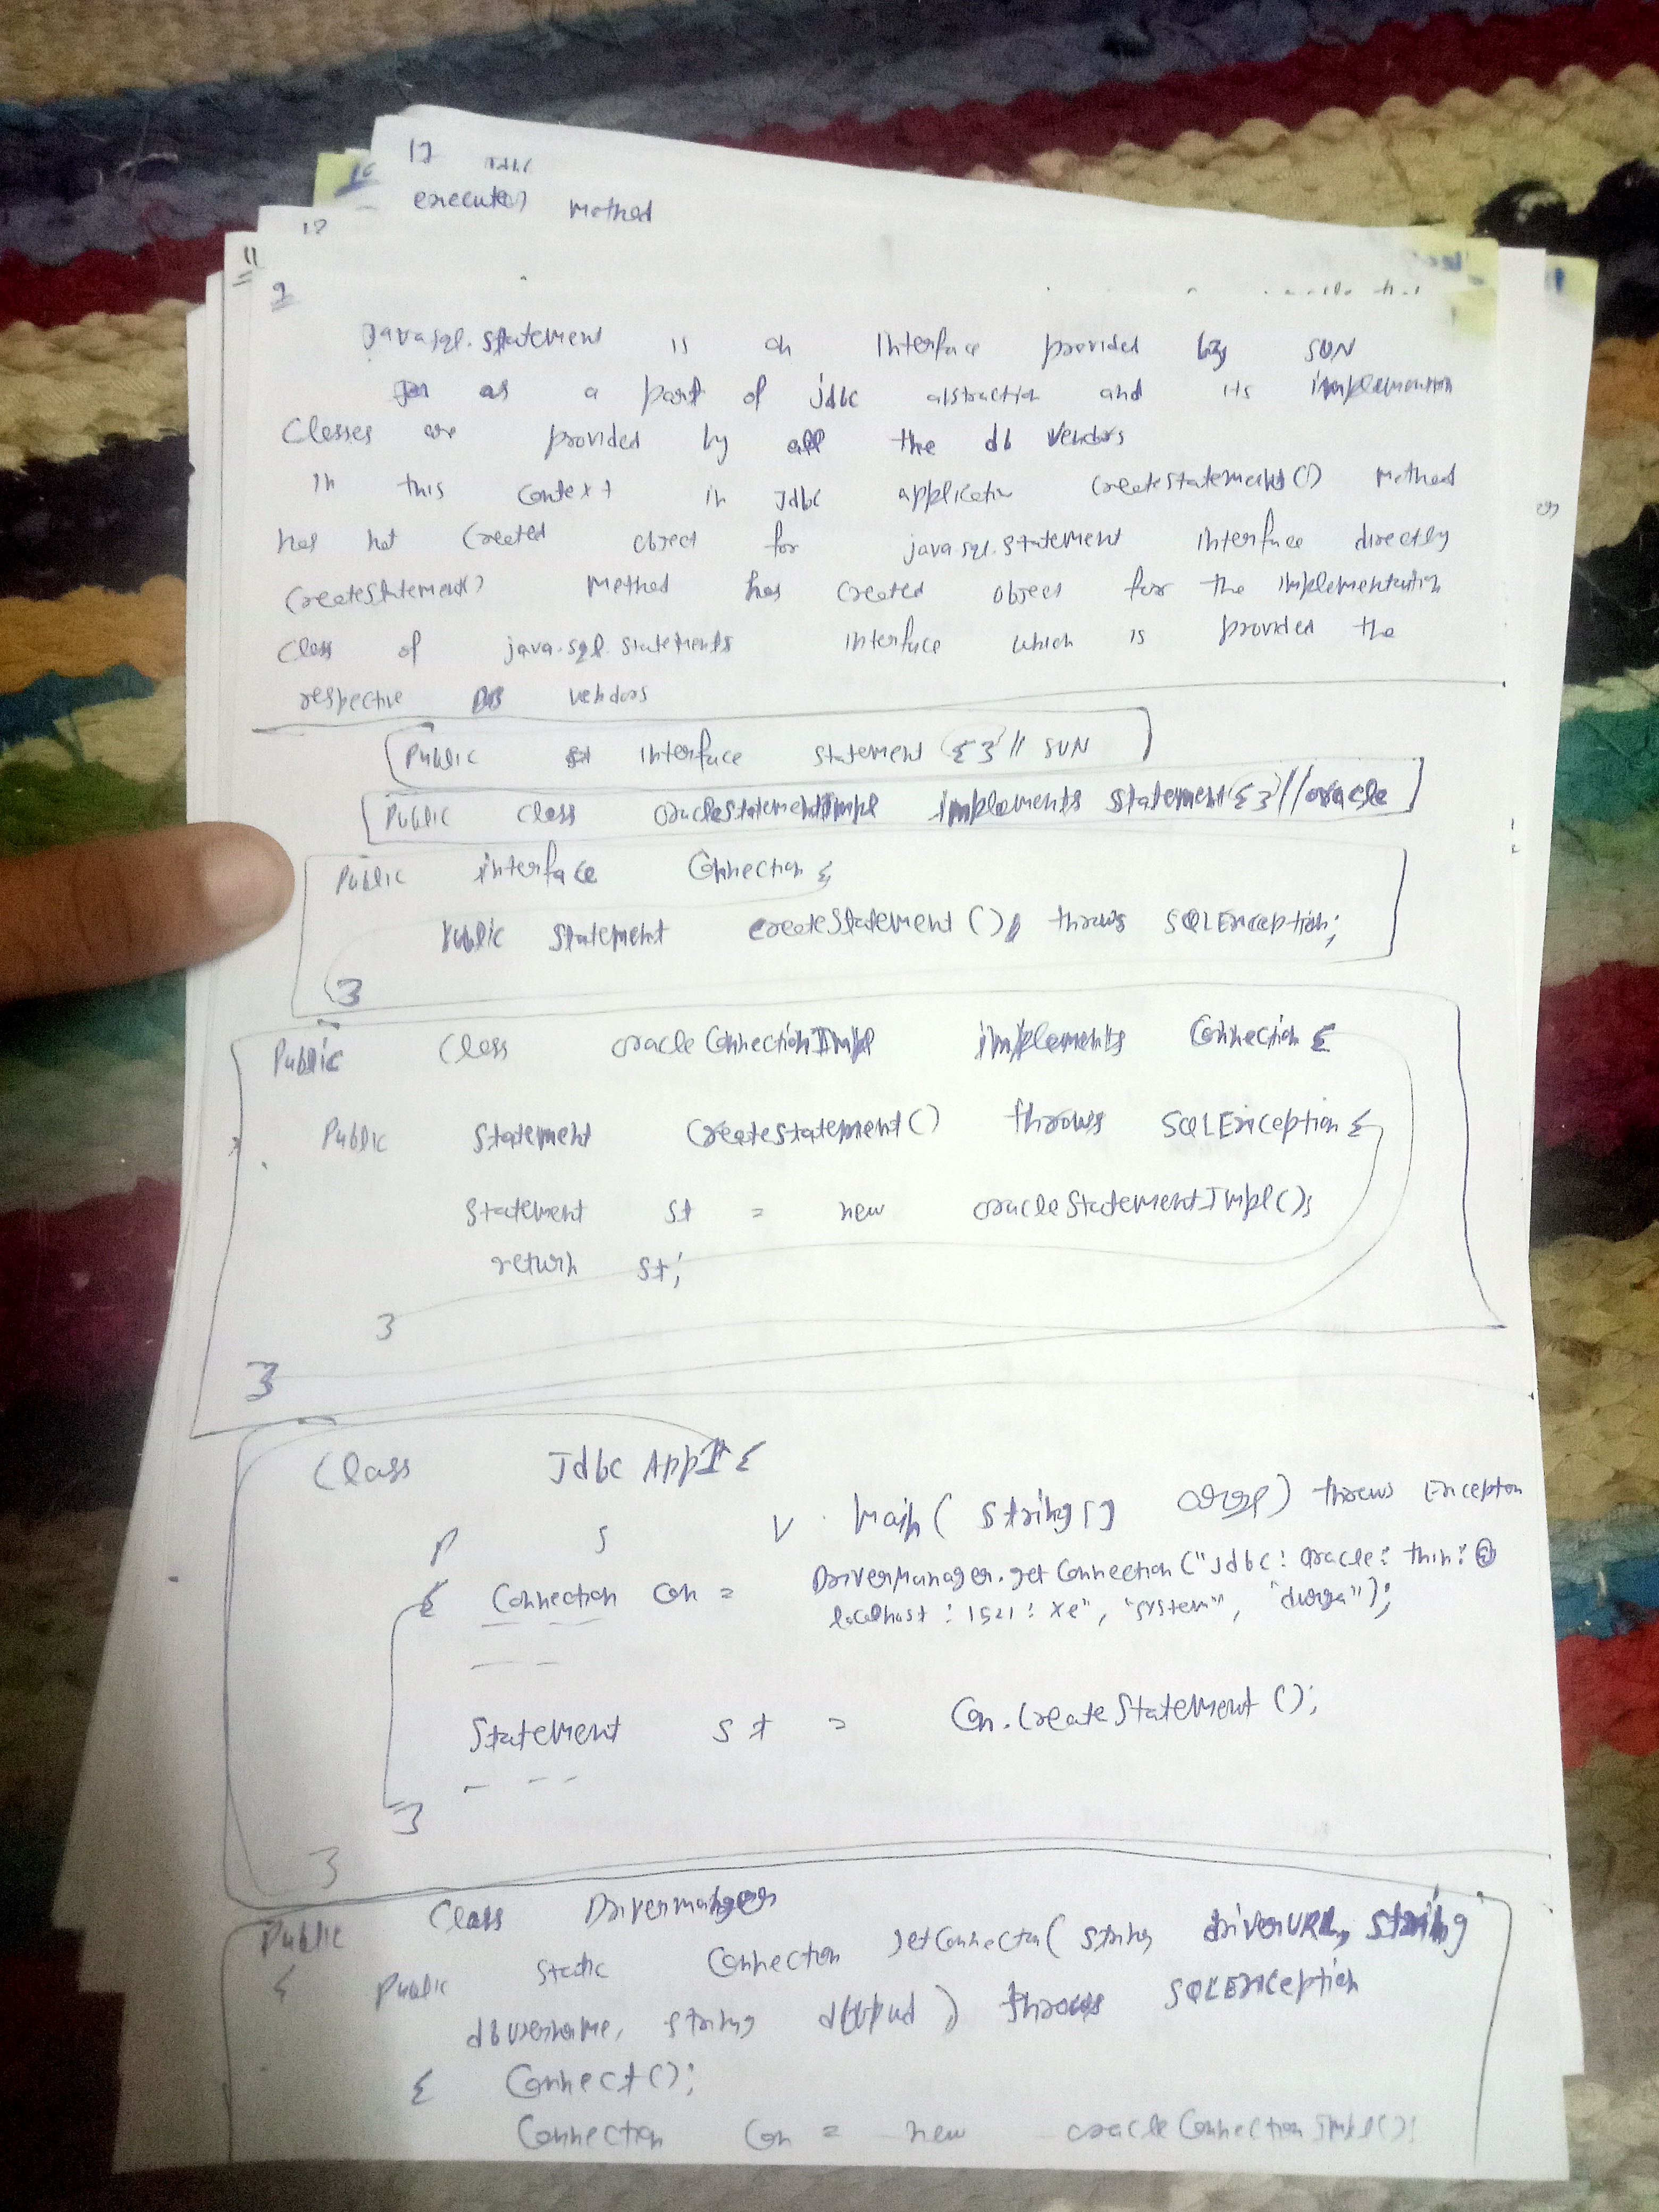 17 Jdbc
execute() Method
12
11
9
java.sql.statement is an interface provided by SUN
as a part of jdbc abstraction and its implemention
Classes are provided by all the db vendors
in this context in Jdbc application createstatement() Method
has not created object for java.sql.statement interface directly
createstatement() Method has created object for the implementation
class of java.sql.statements interface which is provided the
respective DB vendors
Public interface statement { } // SUN
Public class oracleStatementImpl implements statement { } // oracle
Public interface Connection {
Public Statement createStatement() throws SQLException;
}
Public class oracleConnectionImpl implements Connection {
Public Statement createstatement() throws SQLException {
Statement st = new oracleStatementImpl();
return st;
}
}
Class JdbcApp1 {
P S V main( String[] args) throws Exception
{ Connection con = DriverManager.getConnection("Jdbc:oracle:thin:@
localhost:1521:xe", "system", "durga");
Statement st = Con.createStatement();
}
}
Public Class DriverManager
{ Public static Connection getConnection( string driverURL, string
dbusername, string dbpwd ) throws SQLException
{ Connect();
Connection con = new oracleConnectionImpl();